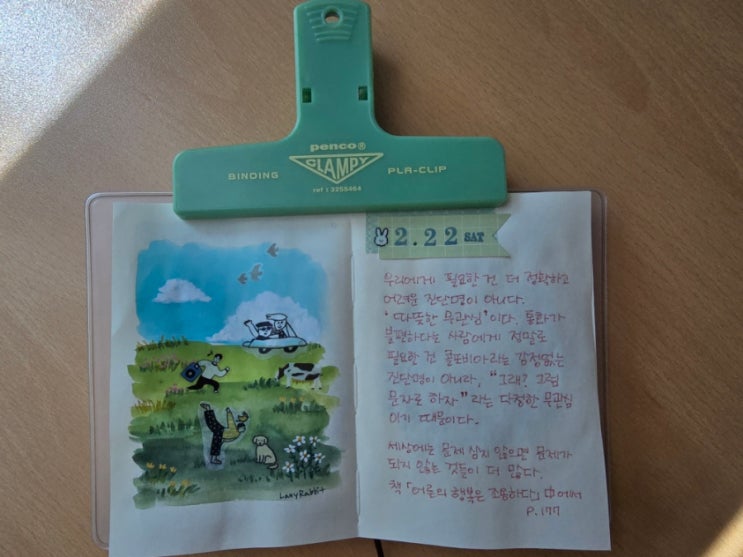 penco®
CLAMPY
BINDING
PLA-CLIP
ref : 3255464
2.22 SAT
우리에게 필요한 건 더 정확하고
어려운 진단명이 아니다.
'따뜻한 무관심'이다. 통화가
불편하다는 사람에게 정말로
필요한 건 콜포비아라는 감정없는
진단명이 아니라, "그래? 그럼
문자로 하자"라는 다정한 무관심
이기 때문이다.
세상에는 문제 삼지 않으면 문제가
되지 않는 것들이 더 많다.
책 「어른의 행복은 조용하다」 中에서
P.177
LazyRabbit